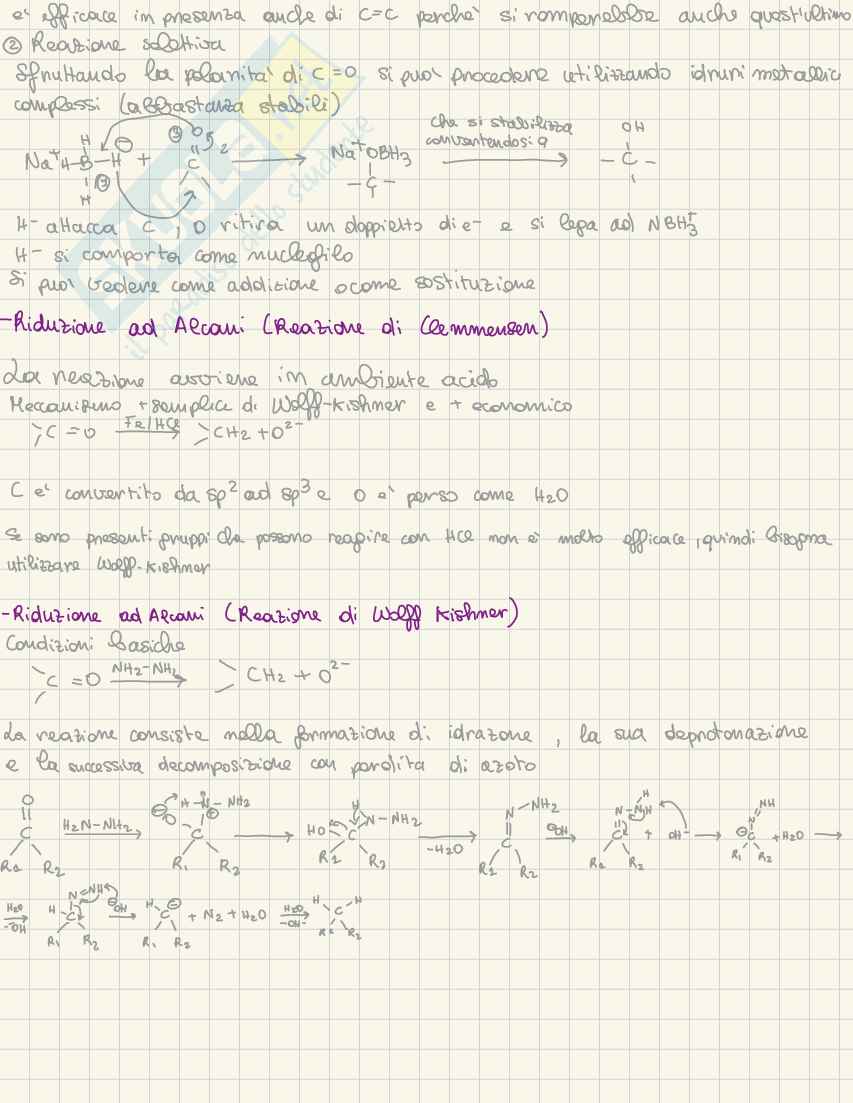 e' efficace in presenza anche di C=C perche' si romperebbe anche quest'ultimo
② Reazione selettiva
Sfruttando la polarita' di C=O si puo' procedere utilizzando idruri metallici
complessi (abbastanza stabili)
Na⁺ H-B-H ⊖ + C=O → Na⁺ OBH3 -C- che si stabilizza convertendosi a → OH -C-
H⁻ attacca C, O ritira un doppietto di e⁻ e si lega ad NBH3⁺
H⁻ si comporta come nucleofilo
Si puo' vedere come addizione o come sostituzione
-Riduzione ad Alcani (Reazione di Clemmensen)
La reazione avviene in ambiente acido
Meccanismo + semplice di Wolff-Kishner e + economico
C=O Fe/HCl → CH2 + O²⁻
C e' convertito da sp² ad sp³ e O e' perso come H2O
Se sono presenti gruppi che possono reagire con HCl non e' molto efficace, quindi bisogna
utilizzare Wolff-Kishner
-Riduzione ad Alcani (Reazione di Wolff Kishner)
Condizioni basiche
C=O NH2-NH2 → CH2 + O²⁻
La reazione consiste nella formazione di idrazone, la sua deprotonazione
e la successiva decomposizione con perdita di azoto
O=C R1 R2 H2N-NH2 → ⊖O C H-N-NH2 ⊕ R1 R2 → HO C H N-NH2 R1 R2 -H2O → N-NH2 C R1 R2 ⊖OH → H N-NH C R1 R2 + OH⁻ → N=NH ⊖C R1 R2 + H2O →
H2O -OH → N=NH H-C R1 R2 ⊖OH → H C⊖ R1 R2 + N2 + H2O H2O -OH⁻ → H C H R1 R2
SKUOLA.net
il paradiso dello studente